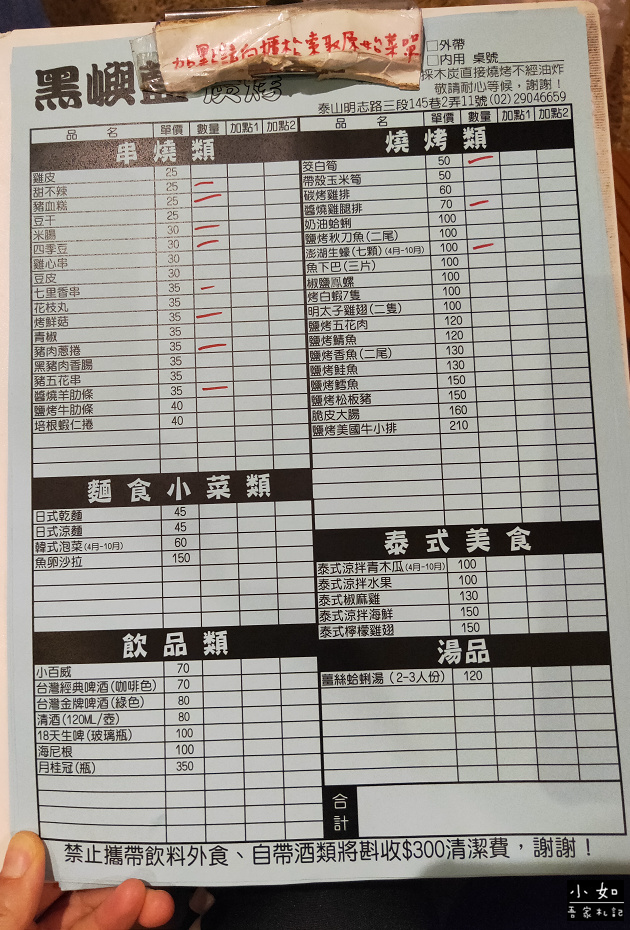 加點請向櫃檯索取原始菜單
□外帶
□內用 桌號
黑嶼
採木炭直接燒烤不經油炸
敬請耐心等候，謝謝！
泰山明志路三段145巷2弄11號(02)29046659
品 名 單價 數量 加點1 加點2
串燒類
雞皮 25
甜不辣 25
豬血糕 25
豆干 25
米腸 30
四季豆 30
雞心串 30
豆皮 30
七里香串 35
花枝丸 35
烤鮮菇 35
青椒 35
豬肉蔥捲 35
黑豬肉香腸 35
豬五花串 35
醬燒羊肋條 35
鹽烤牛肋條 40
培根蝦仁捲 40
麵食小菜類
日式乾麵 45
日式涼麵 45
韓式泡菜(4月-10月) 60
魚卵沙拉 150
飲品類
小百威 70
台灣經典啤酒(咖啡色) 70
台灣金牌啤酒(綠色) 80
清酒(120ML/壺) 80
18天生啤(玻璃瓶) 100
海尼根 100
月桂冠(瓶) 350
品 名 單價 數量 加點1 加點2
燒烤類
茭白筍 50
帶殼玉米筍 50
碳烤雞排 60
醬燒雞腿排 70
奶油蛤蜊 100
鹽烤秋刀魚(二尾) 100
澎湖生蠔(七顆)(4月-10月) 100
魚下巴(三片) 100
椒鹽鳳螺 100
烤白蝦7隻 100
明太子雞翅(二隻) 100
鹽烤五花肉 120
鹽烤鯖魚 120
鹽烤香魚(二尾) 130
鹽烤鮭魚 130
鹽烤鱈魚 150
鹽烤松板豬 150
脆皮大腸 160
鹽烤美國牛小排 210
泰式美食
泰式涼拌青木瓜(4月-10月) 100
泰式涼拌水果 100
泰式椒麻雞 130
泰式涼拌海鮮 150
泰式檸檬雞翅 150
湯品
薑絲蛤蜊湯(2-3人份) 120
合計
禁止攜帶飲料外食、自帶酒類將斟收$300清潔費，謝謝！
小如
吾家札記